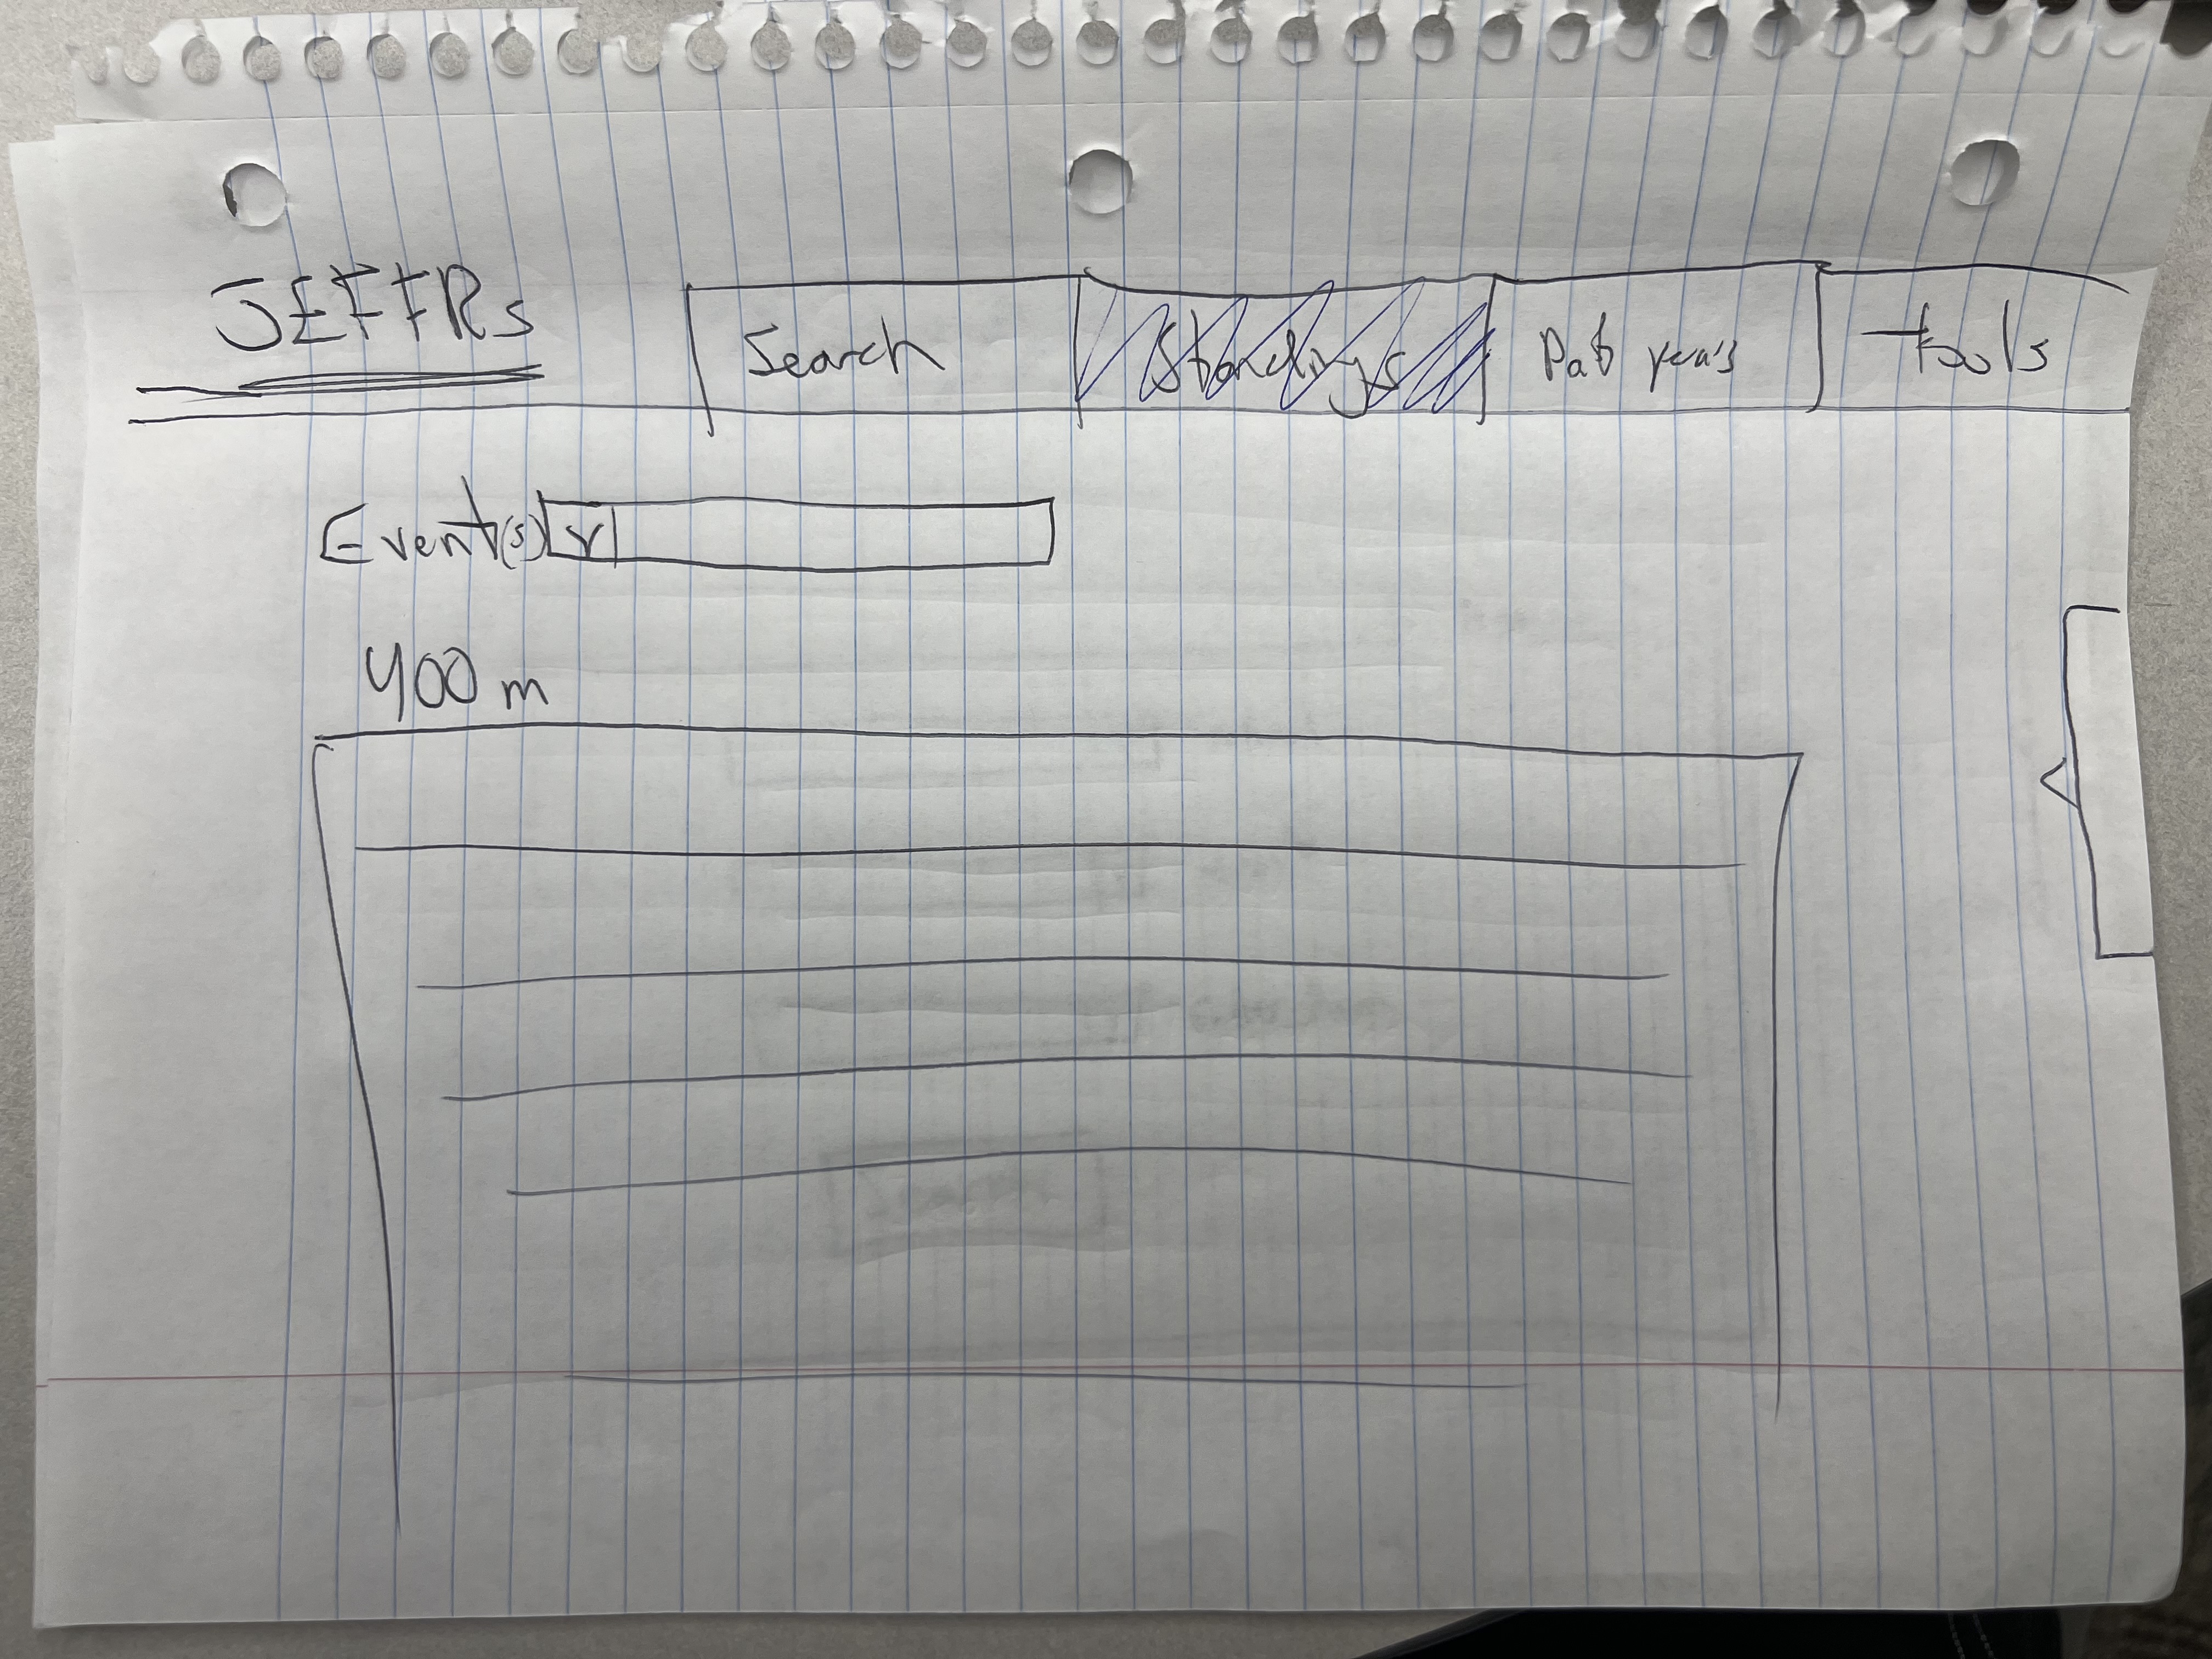 SETTRS
Search
Standings
Past years
tools
Event(s)
400 m